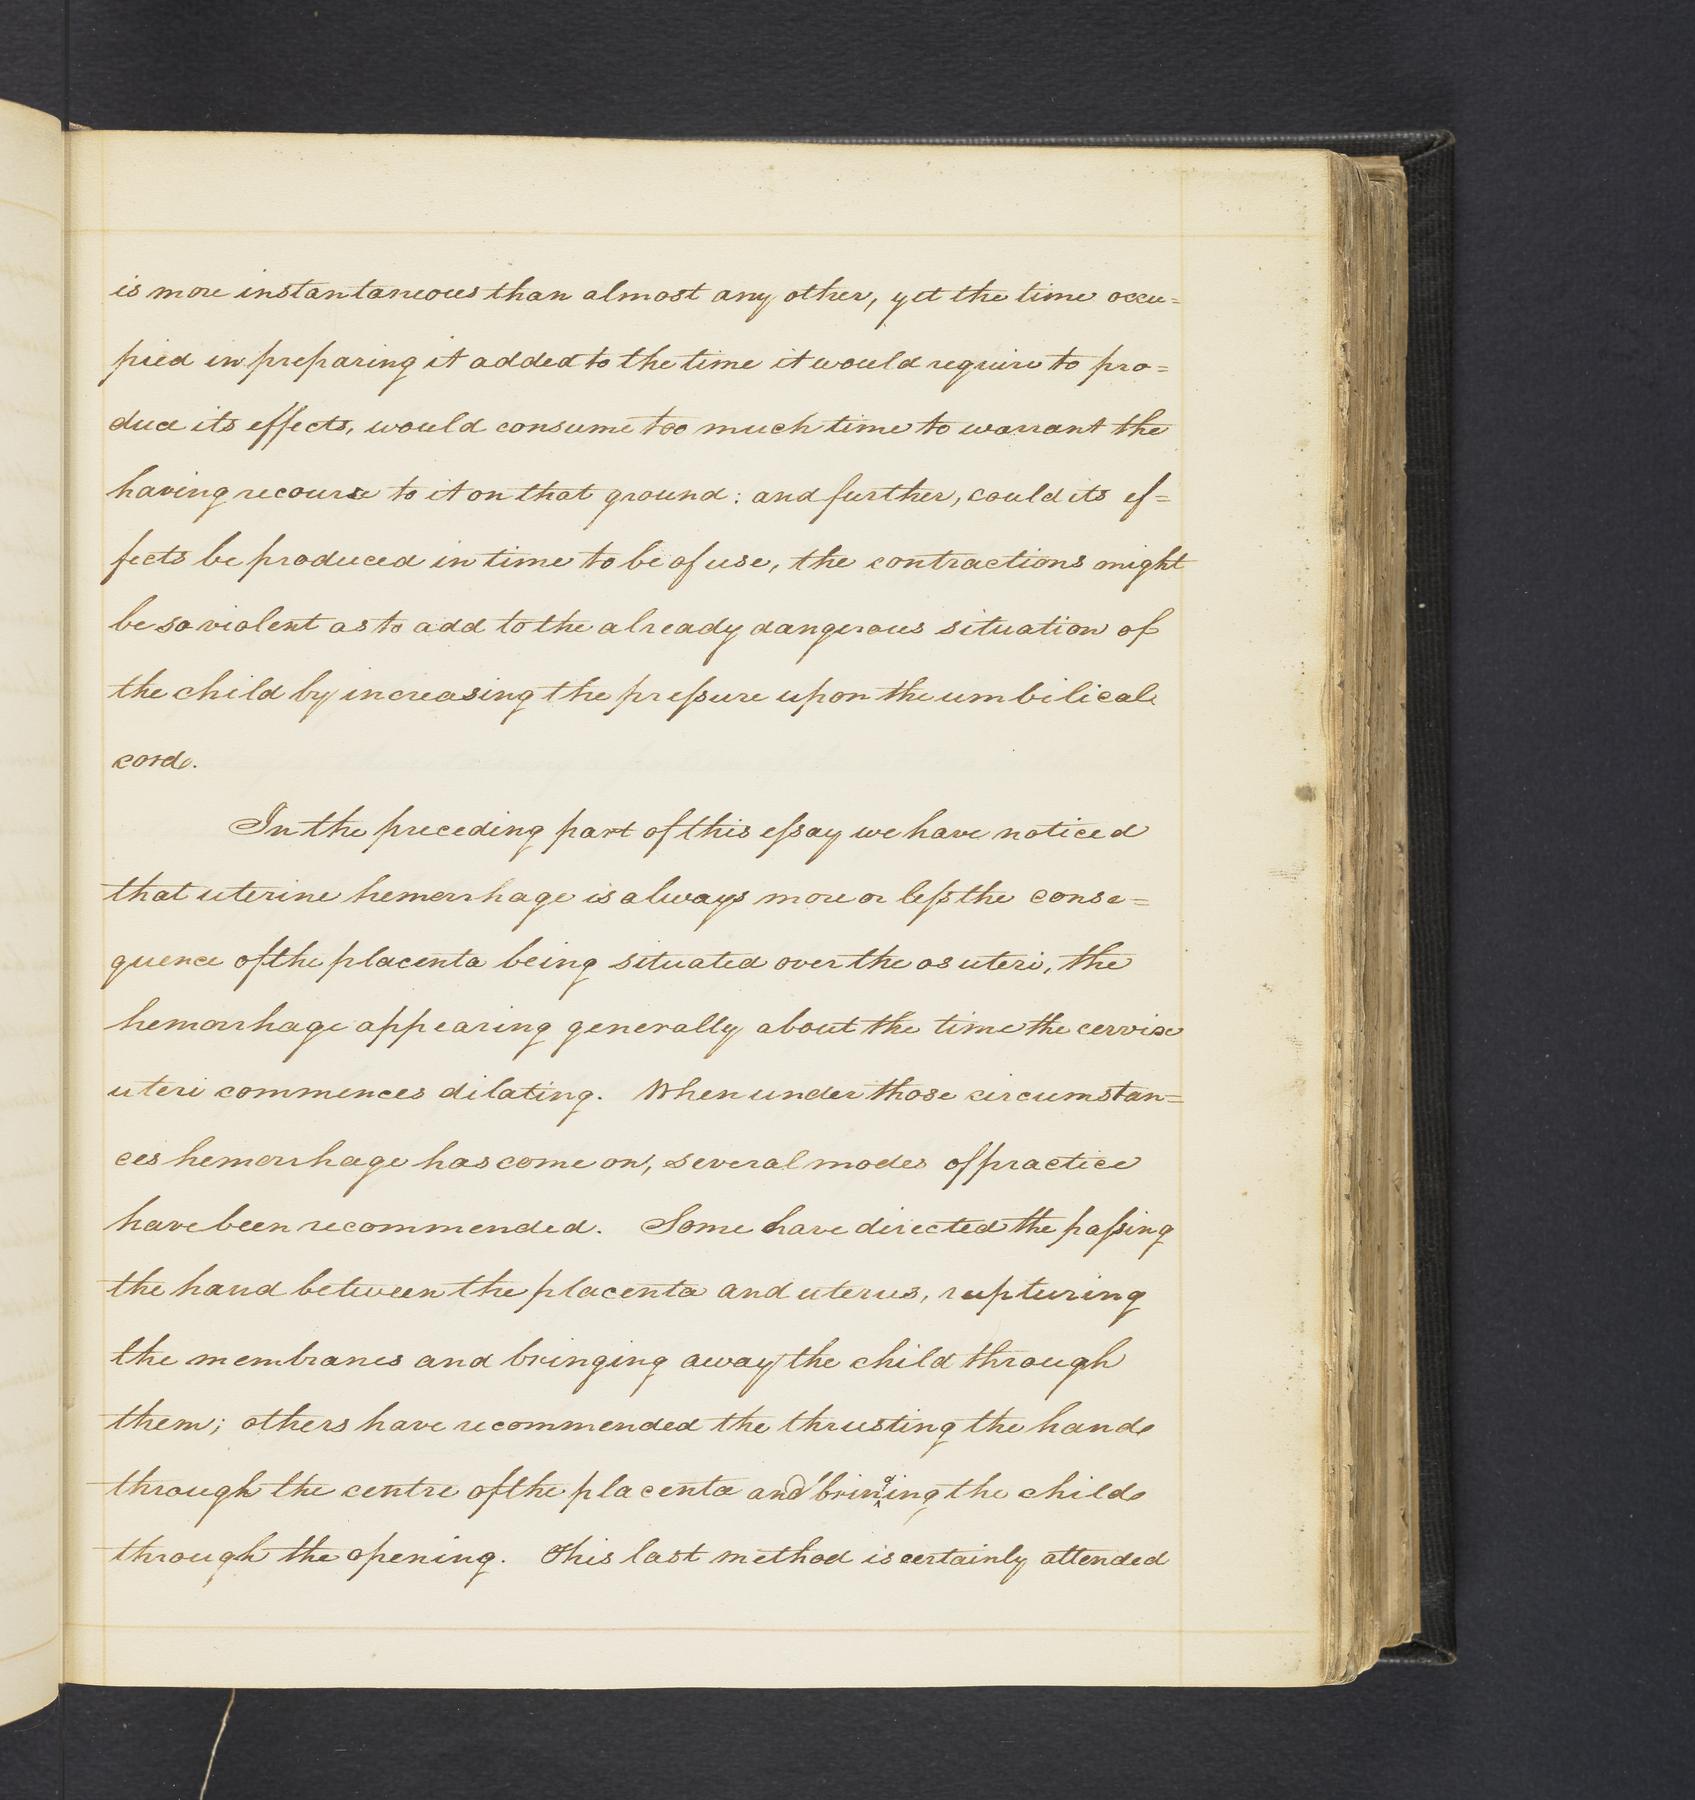 is more instantaneous than almost any other, yet the time occu=
pied in preparing it added to the time it would require to pro=
duce its effects, would consume too much time to warrant the
having recourse to it on that ground; and further, could its ef=
fects be produced in time to be of use, the contractions might
be so violent as to add to the already dangerous situation of
the child by increasing the preſsure upon the umbilical
cord.
In the preceding part of this eſsay we have noticed
that uterine hemorrhage is always more or leſs the conse=
quence of the placenta being situated over the os uteri, the
hemorrhage appearing generally about the time the cervix
uteri commences dilating. When under those circumstan=
ces hemorrhage has come on, several modes of practice
have been recommended. Some have directed the paſsing
the hand between the placenta and uterus, rupturing
the membranes and bringing away the child through
them; others have recommended the thrusting the hand
through the centre of the placenta and bringing the child
through the opening. This last method is certainly attended